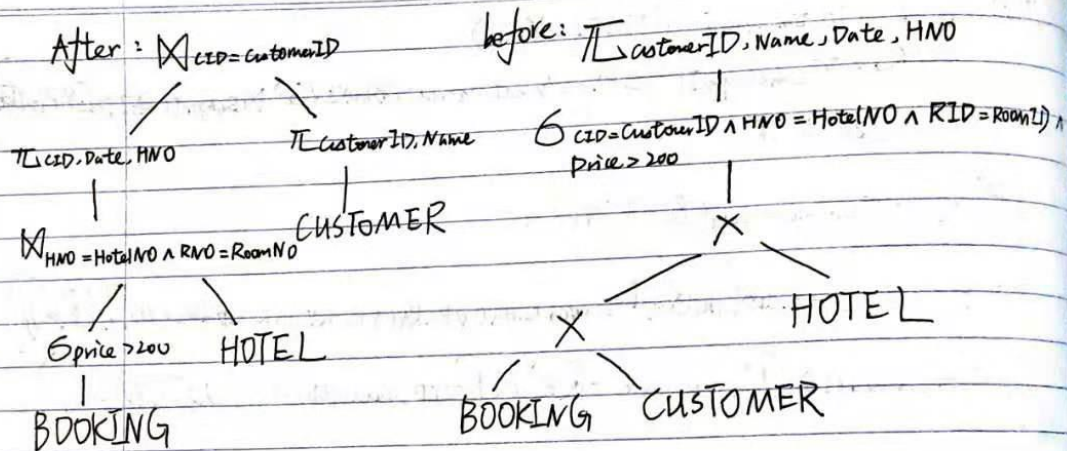 After : ⋈ CID=CustomerID
π CID, Date, HNO
π CustomerID, Name
CUSTOMER
⋈ HNO=HotelNO ∧ RNO=RoomNO
σ price >200
HOTEL
BOOKING
before: π CustomerID, Name, Date, HNO
σ CID=CustomerID ∧ HNO = HotelNO ∧ RID=RoomID ∧
Price > 200
×
HOTEL
×
BOOKING
CUSTOMER